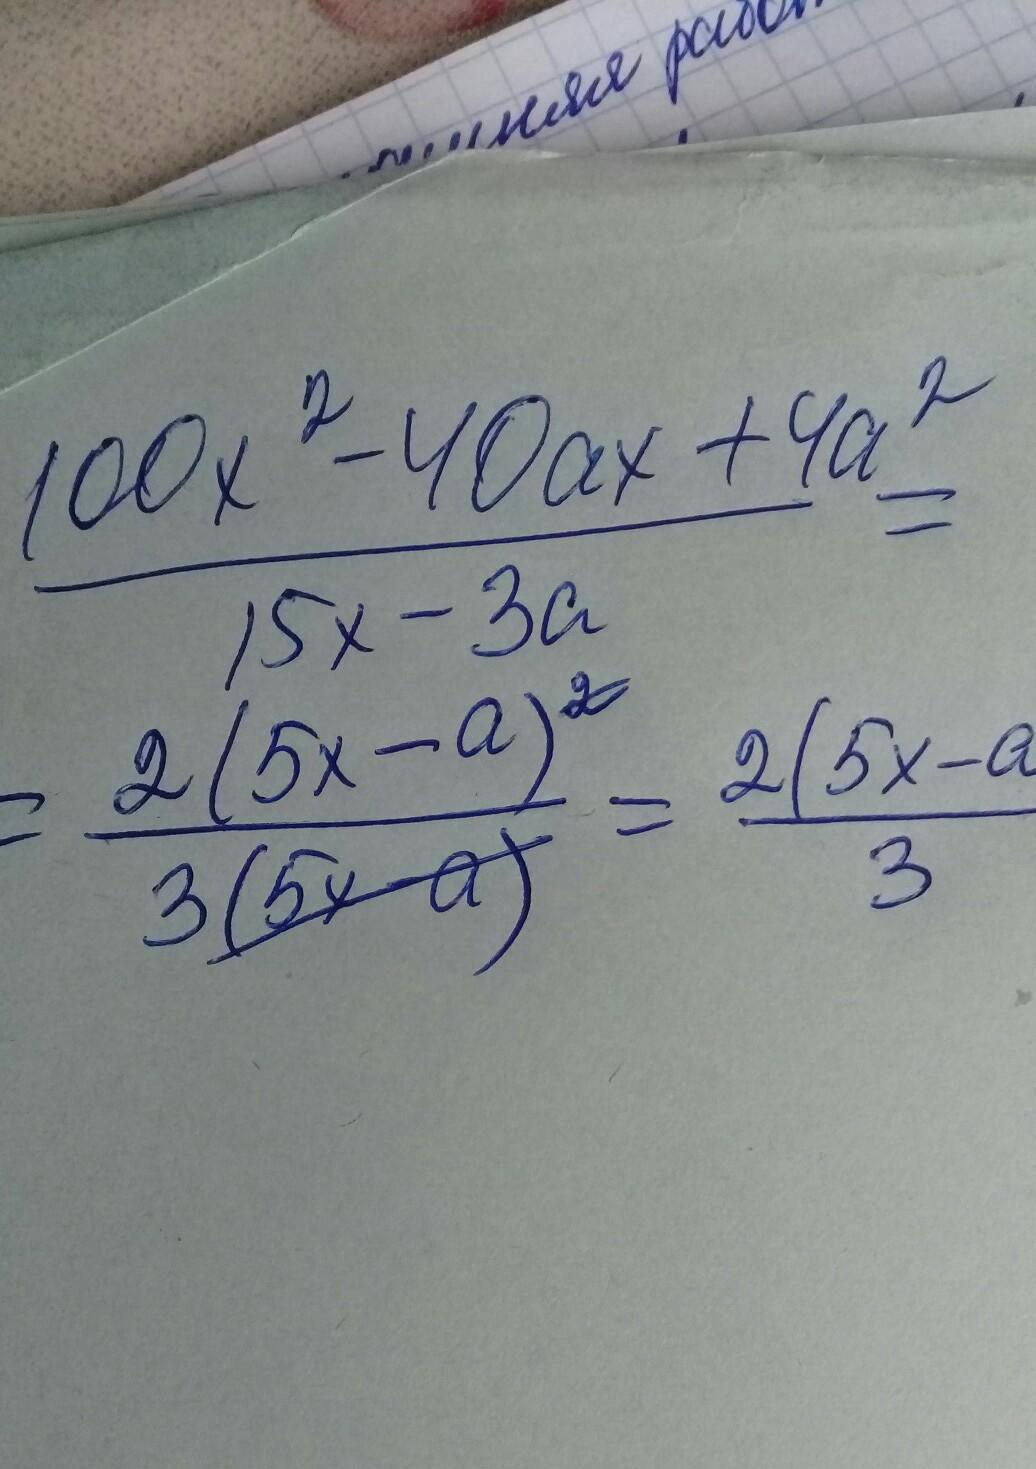 работ
100x² - 40ax + 4a² =
15x - 3a
= 2(5x - a)² = 2(5x - a
3(5x - a) 3